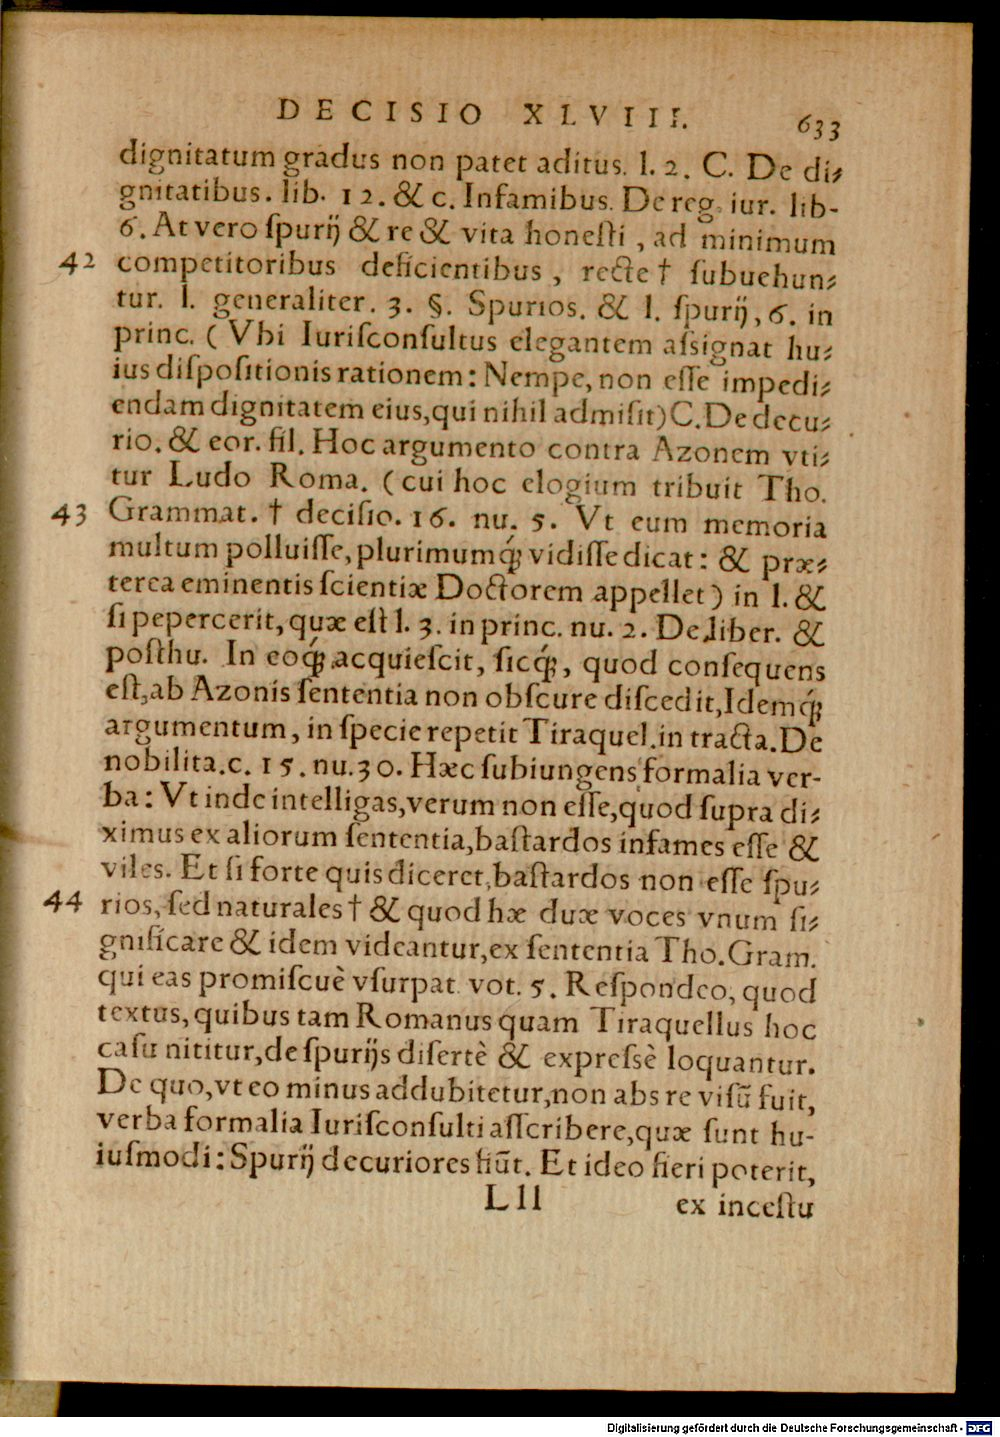 DECISIO XLVIII. 633
dignitatum gradus non patet aditus. l. 2. C. De di⸗
gnitatibus. lib. 12. & c. Infamibus. De reg. iur. lib-
6. At vero ſpurij & re & vita honeſti, ad minimum
42 competitoribus deficientibus, recte † ſubuehun⸗
tur. l. generaliter. 3. §. Spurios. & l. ſpurij, 6. in
princ. (Vbi Iuriſconſultus elegantem aſsignat hu⸗
ius diſpoſitionis rationem: Nempe, non eſſe impedi⸗
endam dignitatem eius, qui nihil admiſit) C. De decu⸗
rio. & eor. fil. Hoc argumento contra Azonem vti⸗
tur Ludo Roma. (cui hoc elogium tribuit Tho.
43 Grammat. † deciſio. 16. nu. 5. Vt eum memoria
multum polluiſſe, plurimumq́; vidiſſe dicat: & præ⸗
terea eminentis ſcientiæ Doctorem appellet) in l. &
ſi pepercerit, quæ eſt l. 3. in princ. nu. 2. De liber. &
poſthu. In eoq́; acquieſcit, ſicq́;, quod conſequens
eſt, ab Azonis ſententia non obſcure diſcedit, Idemq́;
argumentum, in ſpecie repetit Tiraquel. in tracta. De
nobilita. c. 15. nu. 30. Hæc ſubiungens formalia ver-
ba: Vt inde intelligas, verum non eſſe, quod ſupra di⸗
ximus ex aliorum ſententia, baſtardos infames eſſe &
viles. Et ſi forte quis diceret, baſtardos non eſſe ſpu⸗
44 rios, ſed naturales † & quod hæ duæ voces vnum ſi⸗
gnificare & idem videantur, ex ſententia Tho. Gram.
qui eas promiſcuè vſurpat vot. 5. Reſpondeo, quod
textus, quibus tam Romanus quam Tiraquellus hoc
caſu nititur, de ſpurijs diſertè & expreſsè loquantur.
De quo, vt eo minus addubitetur, non abs re viſū fuit,
verba formalia Iuriſconſulti aſſcribere, quæ ſunt hu-
iuſmodi: Spurij decuriores fiūt. Et ideo fieri poterit,
Lll ex inceſtu
Digitalisierung gefördert durch die Deutsche Forschungsgemeinschaft - DFG